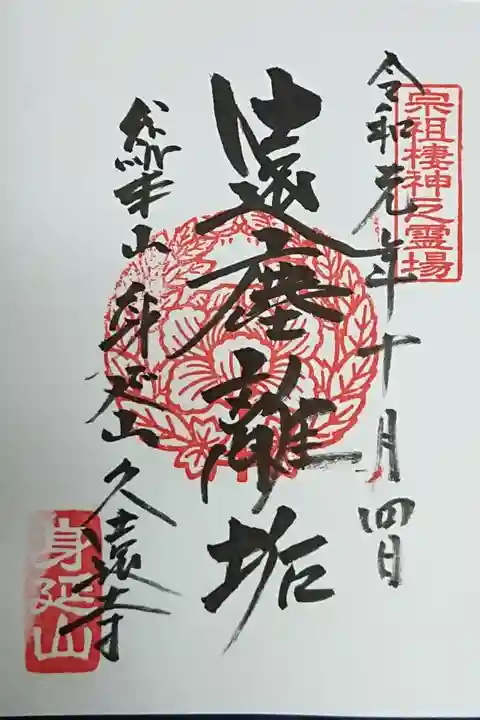 宗祖棲神之霊場
令和元年十月四日
遠塵離垢
総本山身延山久遠寺
身延山